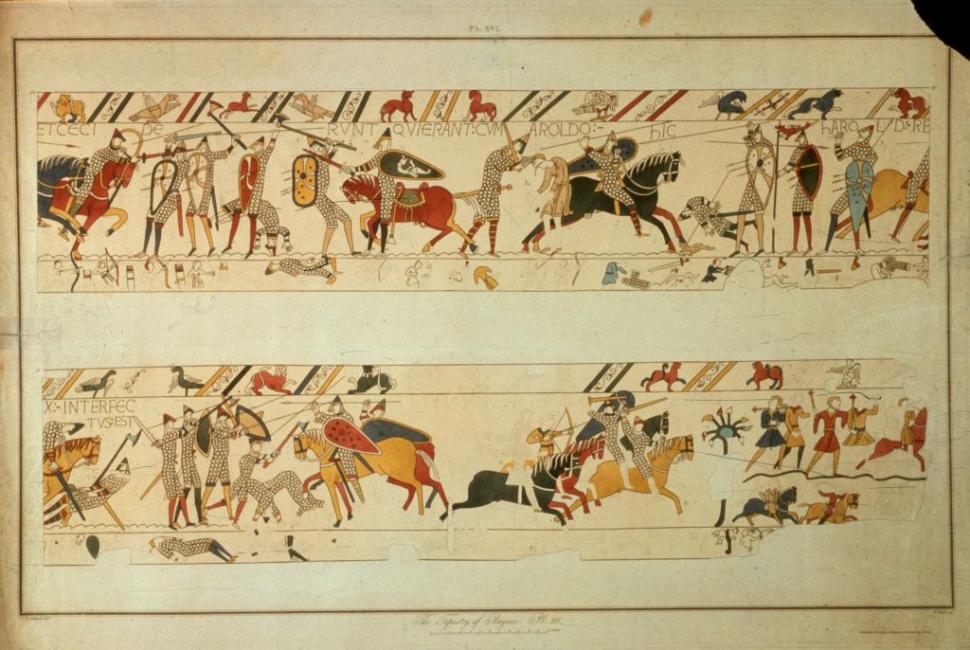 PL. XVI.
ET CECI DE RVNT QVIERANT: CVM AROLDO:- hIC hAROLD: RE
X:- INTERFEC
TVS:EST
The Tapestry of Bayeux. Pl. 16.